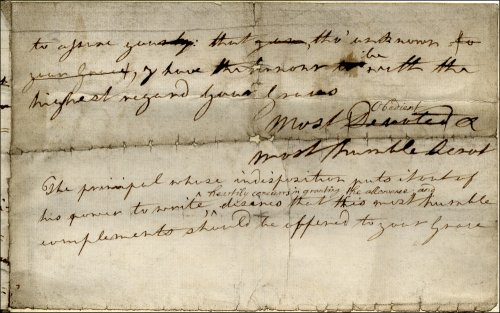 to assure you that you, tho' unknown to
your Grace, I have the honour to be with the
highest regard Your Graces
Obedient
Most Devoted &
most humble Servt
The principal whose indisposition puts it out of
heartily concurs in granting the allowance and
his power to write, desires that his most humble
complements should be offered to your Grace